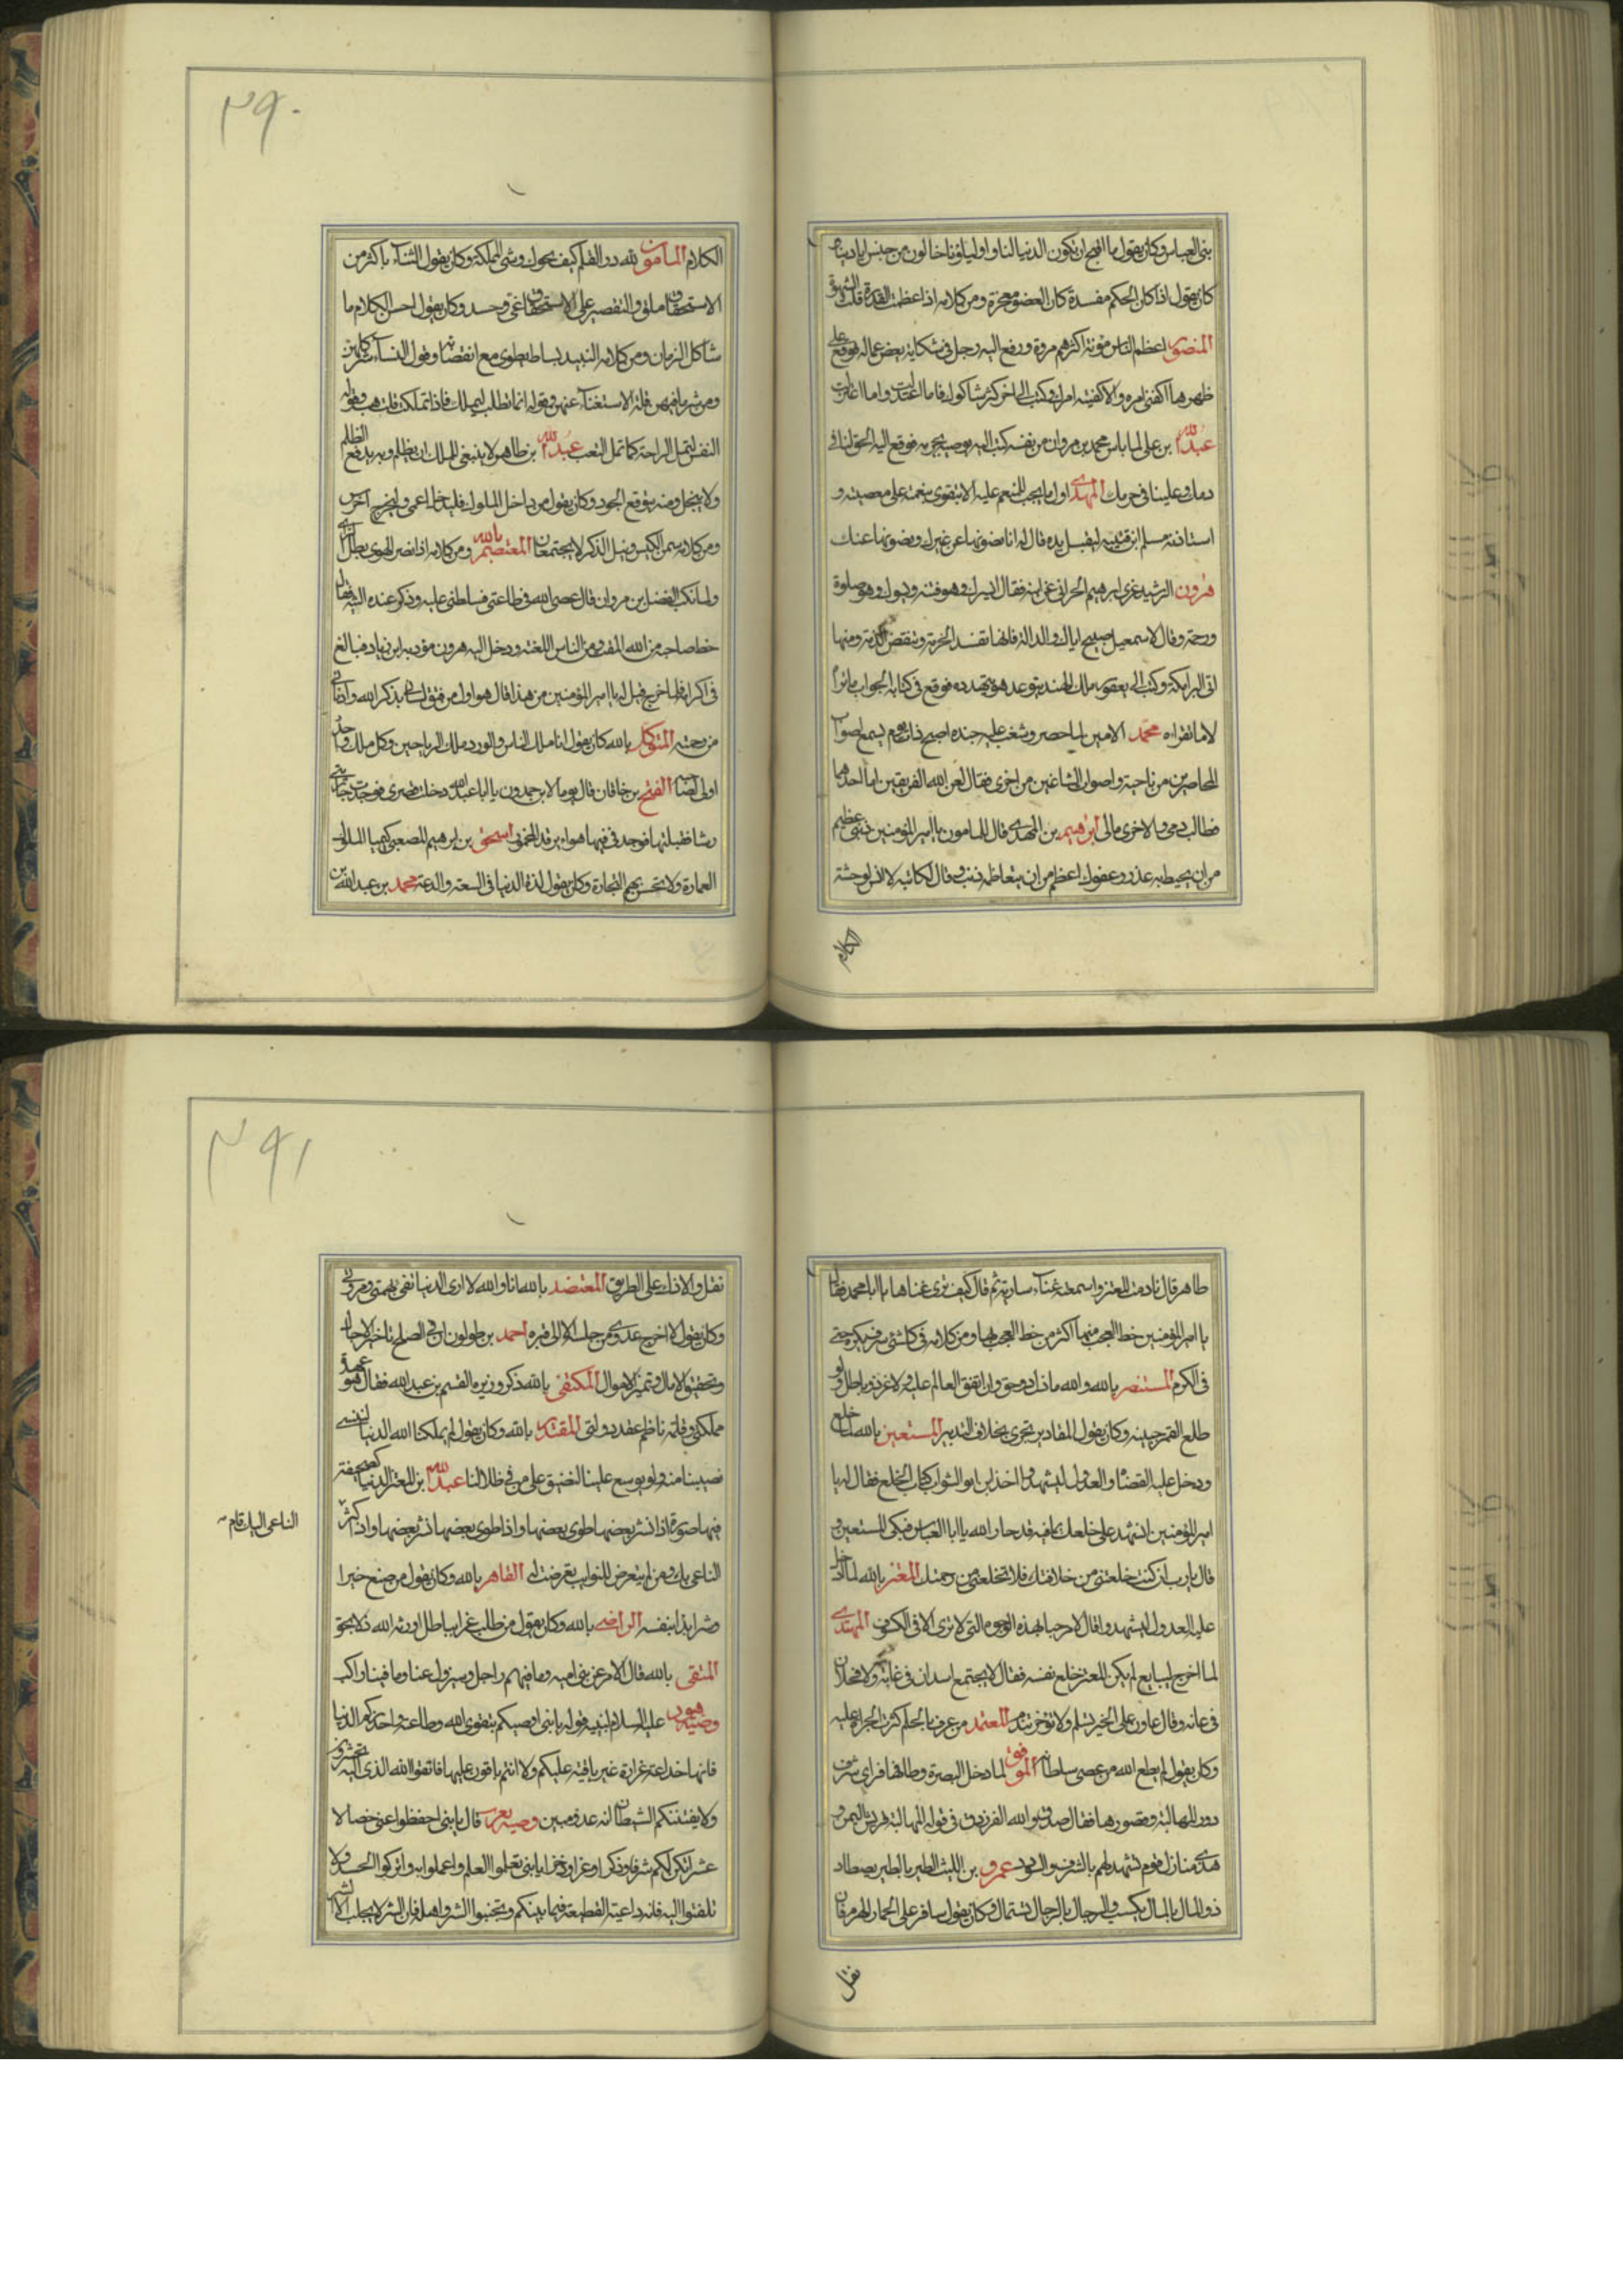 بنى العباس وكان يقول ما اقبح ان تكون الدنيا لنا واولياؤنا خالون من حسن
كان يقول اذا كان الحكم مفسدة كان العفو معجزة ومن كلامه اذا عظمت القدرة قلت الشهوة
المنصور اعظم الناس مؤنة اكثرهم مروة ورفع اليه رجل فى شكاية بعض عماله فوقع على
ظهرها اكفنى امره والا كفيته امرك وكتب الى اخر كثر شاكوك فاما اعتدلت واما اعتزلت
عبدالله بن على لما يأس محمد بن مروان من نفسه كتب اليه يوصيه بحرمه فوقع اليه الحق لنا فى
دمك وعلينا فى حرمك المهدى اول ما يجب للمنعم عليه الا يتقوى بنعمته على معصيته و
استاذنه مسلم ابن قتيبه ليقبل يده فقال له انا نصونها عن غيرك ونصونها عنك
هرون الرشيد عزى ابرهيم الحرانى عن ابنه فقال ايسرك وهو فتنة ويسوءك وهو صلوة
ورحمة وقال لاسمعيل صبيح اياك والدالة فانها تفسد الحرمة وتنقض الذمة ومنها
اتى البرامكة وكتب اليه يعقور ملك الهند يتوعده ويتهدده فوقع فى كتابه الجواب ما تراه
لا ما تقراه محمد الامين لما حصر وشغب عليه جنده اصبح ذات يوم يسمع اصوات
المحاصرين من ناحية واصوات الشاغبين من اخرى فقال لعن الله الفريقين اما احدهما
فطالب دمى والاخرى مالى ابرهيم بن المهدى قال للمامون يا امير المؤمنين ذنبى عظيم
من ان يحيط به عذر وعفوك اعظم من ان يتعاظمه ذنب وقال لكاتبه لا تلتمس وحشة
الكلام
٢٩٠
الكلام المامون لله در القلم كيف يحوك وشى المملكة وكان يقول الثناء باكثر من
الاستحقاق ملق والتقصير على الاستحقاق عى وحسد وكان يقول احسن الكلام ما
شاكل الزمان ومن كلامه النبيذ بساط يطوى مع انقضائه وقول النساء شر كلهن
ومن شر ما فيهن قلة الاستغناء عنهن وقوله انما تطلب الدنيا لتملك فاذا تملكت فلتهب وقوله
النفس لتمل الراحة كما تمل التعب عبدالله بن طاهر لا ينبغى للملك ان يظلم وبه يدفع الظلم
ولا يبخل ومنه يتوقع الجود وكان يقول من داخل الملوك فليدخل اعمى وليخرج اخرس
ومن كلامه سمن الكيس ونبل الذكر لا يجتمعان المعتصم بالله ومن كلامه اذا نصر الهوى بطل الراى
ولما نكب الفضل بن مروان قال عصى الله فى طاعتى فسلطنى عليه وذكر عنده فقال
خطا صاحبه من الله المقت ومن الناس اللعنة ودخل اليه هرون مؤدبه ابن زياد فبالغ
فى اكرامه فلما خرج قيل له يا امير المؤمنين من هذا قال هو اول من فتق لسانى بذكر الله وادنانى
من رحمته المتوكل بالله كان يقول انا ملك الناس والورد ملك الرياحين وكل ملك واحد
اولى بصاحبه الفتح بن خاقان قال يوما لابن حمدون يا ابا عبد الله دخلت قصرى فوجدت
رشا فقبلتها فوجدت فيها هواء برقد المخمور اسحق بن ابرهيم المصعبى كيميا الملوك
العمارة ولا تحسن بهم التجارة وكان يقول لذة الدنيا فى السعة والدعة محمد بن عبد الله بن
طاهر قال نادمت المعتز واسمعته غناء سارية ثم قال كيف ترى غناها يا ابا محمد فقال
يا امير المؤمنين خط العجب منها اكثر من خط العجب لها ومن كلامه
فى الكرم المستنصر بالله والله ما ذل ذو حق وان اتفق العالم عليه ولا عز ذو باطل ولو
طلع القمر من جبينه وكان يقول المقادير تجرى بخلاف التدبير المستعين بالله لما خلع
ودخل عليه القضاة والعدول ليشهدوا اخذ ابن ابو الشوارب كتاب الخلع فقال له يا
امير المؤمنين انشهد على خلعك بما فيه قد خار الله يا ابا العباس فبكى المستعين و
قال يا رب ان كنت خلعتنى من خلافتك فلا تخلعنى من رحمتك المعتز بالله لما ادخل
عليه العدول ليشهدوا قال لا مرحبا بهذه الوجوه التى لا ترى الا فى الكسوف المهتدى
لما اخرج ليبايع لم يكن المعتز خلع نفسه فقال لا يجتمع اسدان فى غابة ولا فحلان
فى عانة وقال عاون على الخير تسلم ولا تؤخر تندم المعتمد من عرف بالحلم كثرت الجراة عليه
وكان يقول لم يطع الله من عصى سلطانه الموفق لما دخل البصرة وطافها فراى شرف
دور المهالبة وقصورها فقال صدق والله الفرزدق فى قوله
هذى منازل قوم تشهد لهم بالشرف والسودد عمرو بن الليث الطير بالطير يصطاد
ذو المال بالمال يكسب والرجال بالرجال تستمال وكان يقول سافر على الحمار الهرم فان
ثقل
٢٩١
نقل والا ذلك على الطريق المعتضد بالله انا والله لا ارى الدنيا تفى بهمتى ومروتى
وكان يقول لا اخرج عدوى من حلب الا الى قبره احمد بن طولون ان فى الصلح تاخير الاجال
وتحقيق الامال وتثمير الاموال المكتفى بالله ذكر وزيره القسم بن عبيد الله فقال هو عمدة
مملكتى وقلمه ناظم عقد دولتى المقتدر بالله وكان يقول لم يملكنا الله الدنيا لننسى
نصيبنا منها ولو يوسع علينا لنضيق على من فى ظلالنا عبدالله بن المعتز الدنيا كصحيفة
فيها صورة اذا نشر بعضها طوى بعضها واذا طوى بعضها نشر بعضها واذا كثر
الناعى اليك قام
الناعى بك ومن لم يتعرض للنوايب تعرضت له القاهر بالله وكان يقول من صنع خيرا
وشرا بدا بنفسه الراضى بالله وكان يقول من طلب عزا بباطل اورثه الله ذلا بحق
المتقى بالله قال الامر عن بنى اميه وما فيهم راجل وسيزول عنا وما فينا راكب
وصيت هود عليه السلام لبنيه وقوله يا بنى اوصيكم بتقوى الله وطاعته واحذركم الدنيا
فانها خداعة غرارة غير باقية عليكم ولا انتم باقون عليها فاتقوا الله الذى اليه تحشرون
ولا يفتننكم الشيطان انه عدو مبين وصيه يعرب قال يا بنى احفظوا عنى خصالا
عشرا تكن لكم شرفا وذكرا وعزا وذخرا يا بنى تعلموا العلم واعملوا به واتركوا الحسد ولا
تلتفتوا اليه فانه داعية القطيعة فيما بينكم وتجنبوا الشر واهله فان الشر لا يجلب الا الشر